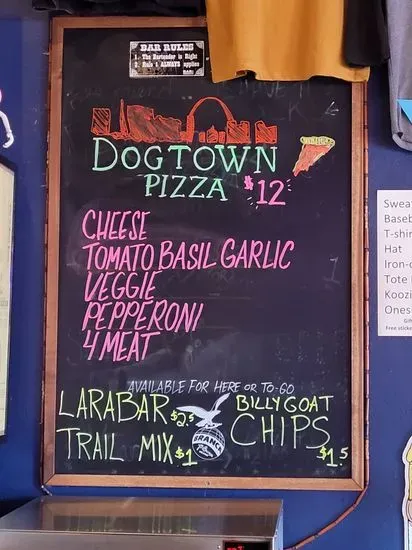 BAR RULES
1. The Bartender is Right
2. Rule 1 ALWAYS applies
BAR
DOGTOWN
PIZZA $12
CHEESE
TOMATO BASIL GARLIC
VEGGIE
PEPPERONI
4 MEAT
AVAILABLE FOR HERE OR TO-GO
LARABAR $2.5
TRAIL MIX $1
BILLY GOAT
CHIPS
$1.5
Swea
Baseb
T-shir
Hat
Iron-o
Tote
Koozi
Ones
Free sticke